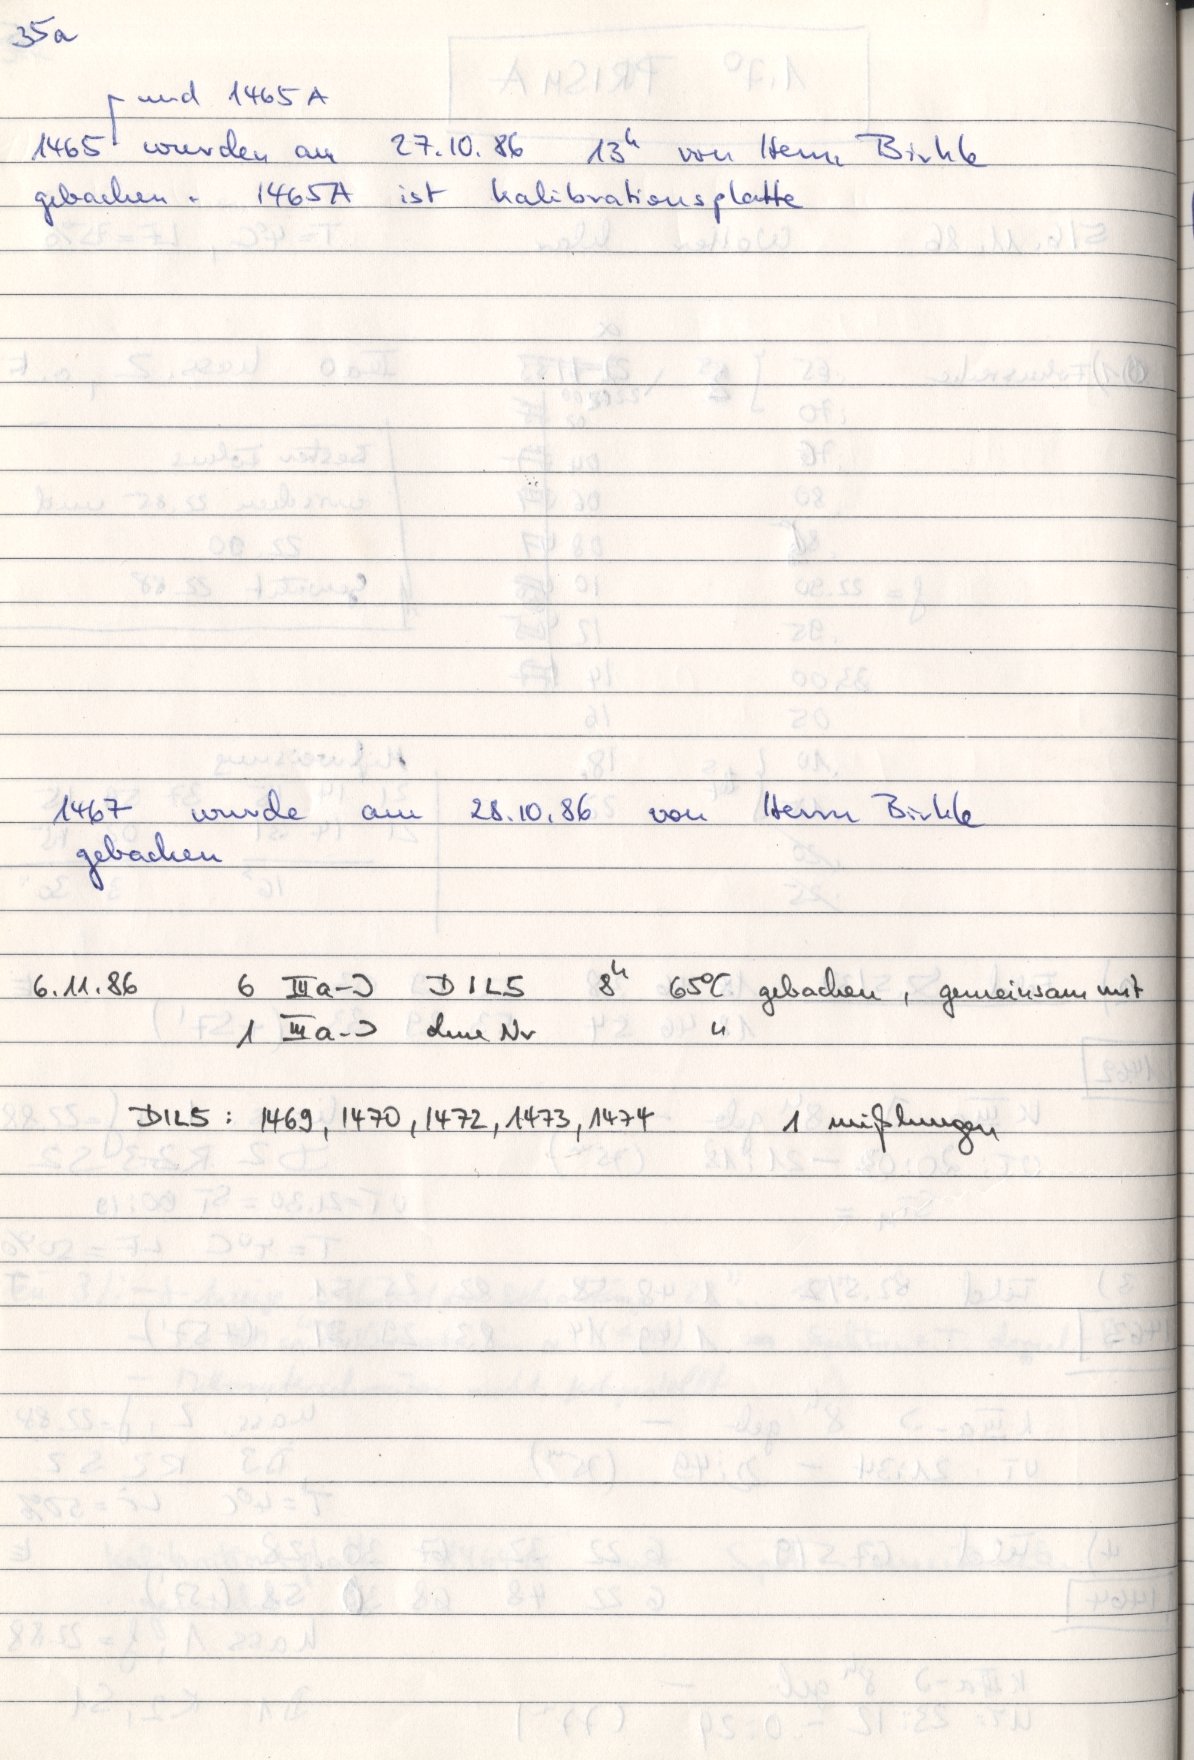 35a
und 1465A
1465 wurden am 27.10.86 13h von Herrn Birkle
gebacken. 1465A ist Kalibrationsplatte
1467 wurde am 28.10.86 von Herrn Birkle
gebacken
6.11.86 6 IIIa-J D1L5 8h 65°C gebacken, gemeinsam mit
1 IIIa-J ohne Nr "
D1L5: 1469, 1470, 1472, 1473, 1474 1 mißlungen